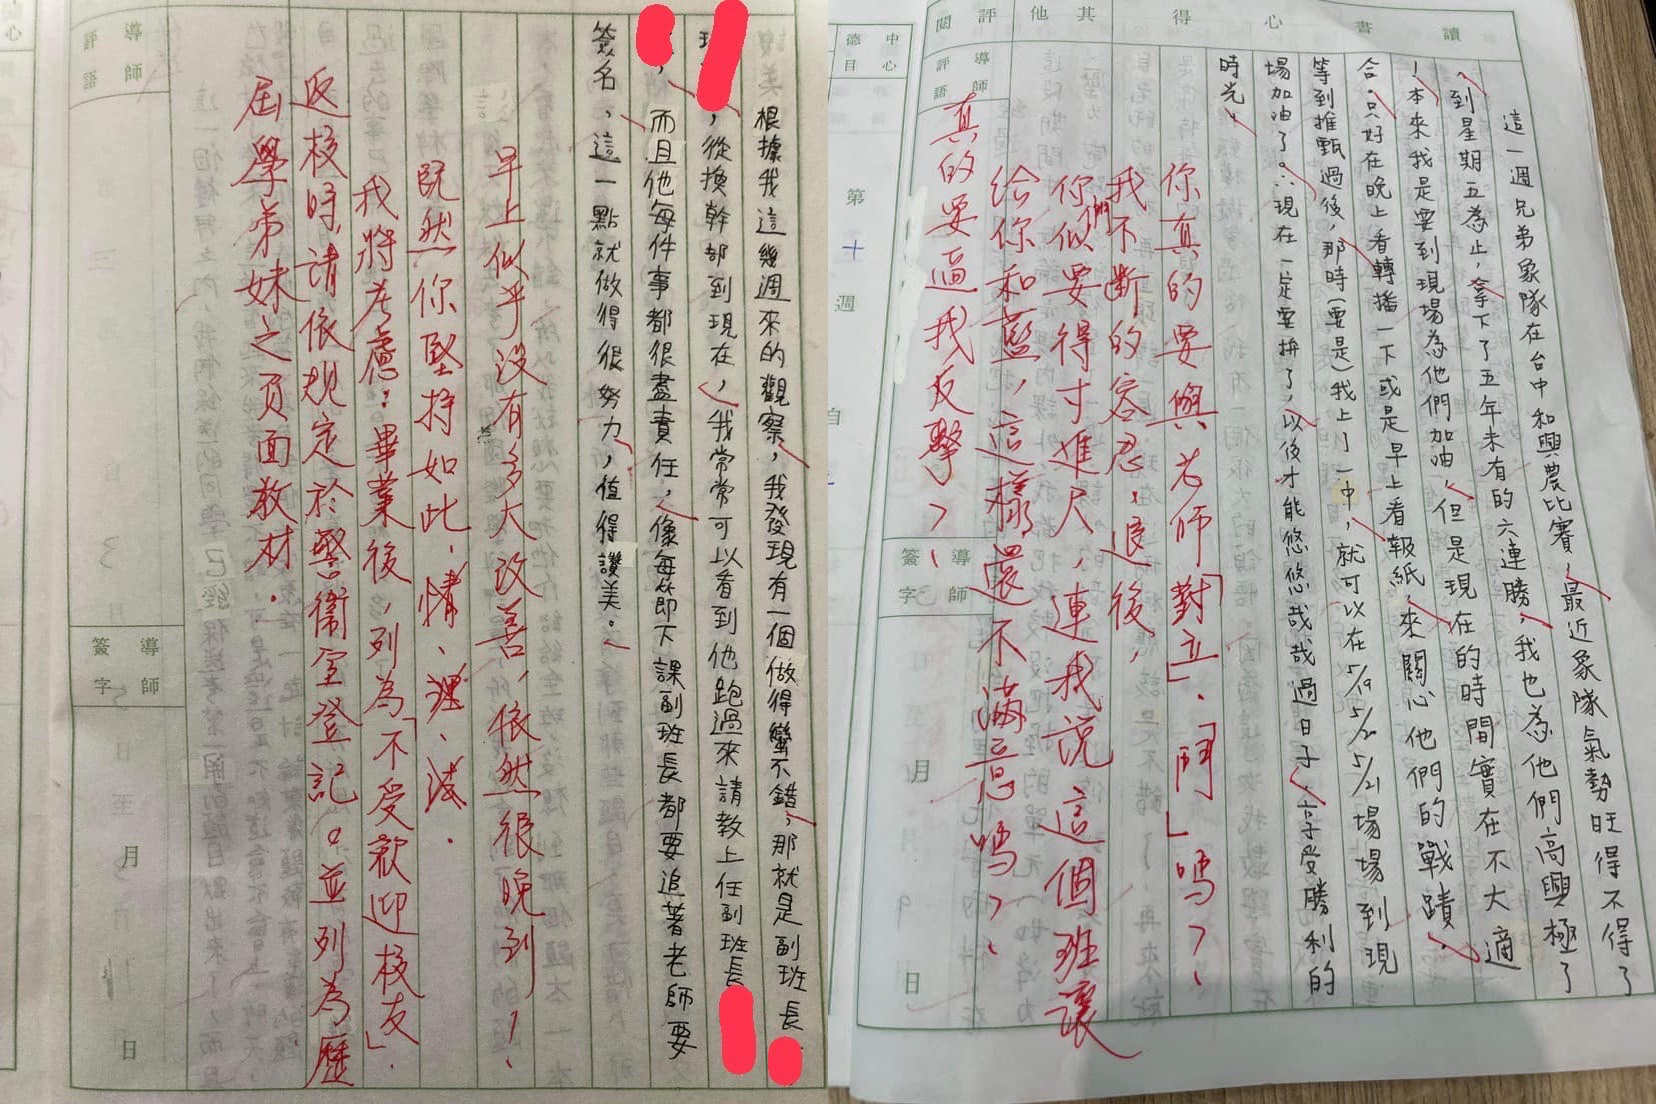 讀書心得
其他
評閱
這一週兄弟象隊在台中和興農比賽，最近象隊氣勢旺得不得了
，到星期五為止，拿下了五年未有的六連勝，我也為他們高興極了
！本來我是要到現場為他們加油，但是現在的時間實在不大適
合。只好在晚上看轉播一下或是早上看報紙，來關心他們的戰蹟。
等到推甄過後，那時(要是)我上了一中，就可以在5/19 5/20 5/21場場到現
場加油了。∴現在一定要拼了，以後才能悠悠哉哉過日子，享受勝利的
時光。
導師評語
你真的要與老師「對立」、「鬥」嗎？！
我不斷的容忍、退後，
你們似要得寸進尺，連我說這個班讓
給你和藍，這樣還不滿意嗎？！
真的要逼我反擊？！
導師簽字
月
日
中心德目
第十週
自
根據我這幾週來的觀察，我發現有一個做得蠻不錯，那就是副班長
，從換幹部到現在，我常常可以看到他跑過來請教上任副班長
，而且他每件事都很盡責任，像每節下課副班長都要追著老師要
簽名，這一點就做得很努力，值得讚美。
早上似乎沒有多大改善，依然很晚到！
既然你堅持如此，情、理、法．
我將考慮：畢業後，列為「不受歡迎校友」．
返校時，請依規定於警衛室登記。並列為歷
屆學弟妹之負面教材．
導師評語
導師簽字
月
日